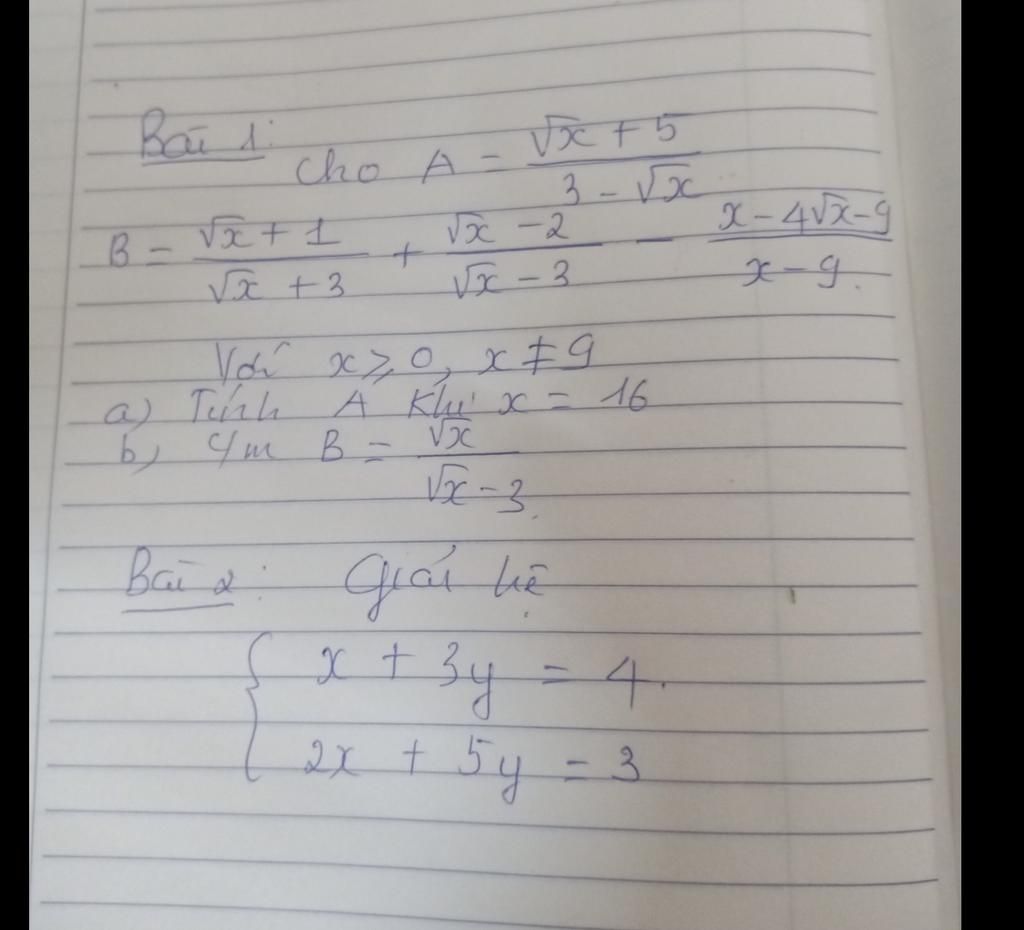 Bài 1: Cho A = (√x + 5)/(3 - √x)
B = (√x + 1)/(√x + 3) + (√x - 2)/(√x - 3) - (x - 4√x - 9)/(x - 9).
Với x ⩾ 0, x ≠ 9
a) Tính A khi x = 16
b) c/m B = √x/(√x - 3).
Bài 2: Giải hệ
{ x + 3y = 4.
2x + 5y = 3